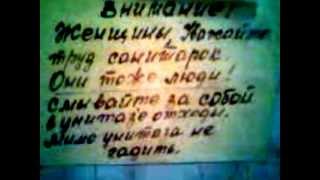 Внимание!
Женщины, Уважайте
труд санитарок
Они тоже люди!
смывайте за собой
в унитазе отходы.
Мимо унитаза не
гадить.